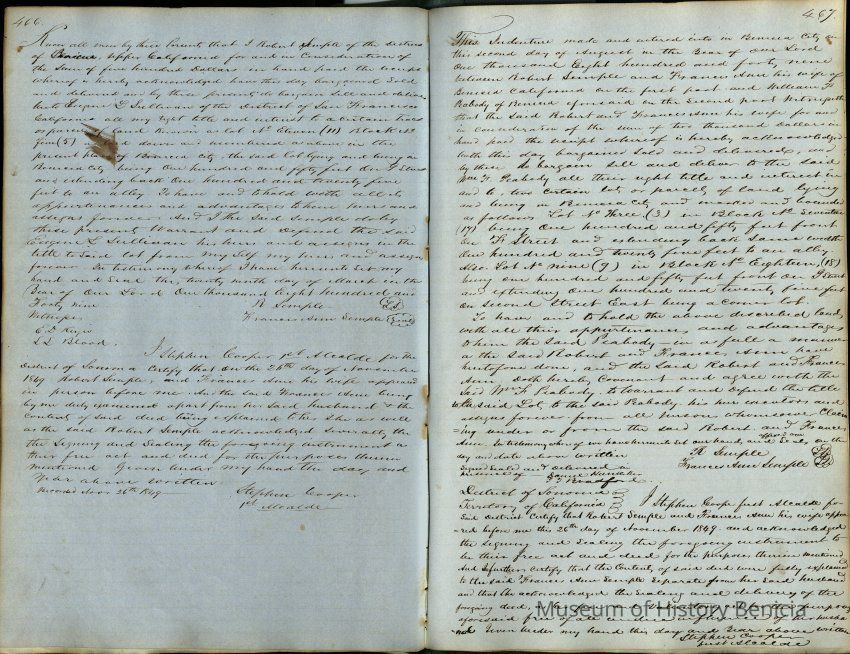 466.
Know all men by these Presents that I Robert Semple of the District
of Upper California for and in Consideration of
the Sum of five hundred Dollars in hand paid the receipt
whereof is hereby acknowledged have this day bargained Sold
and delivered and by these presents do bargain Sell and deliver
unto Eugene L Sullivan of the District of San Francisco
California all my right title and interest to a Certain tract
or parcel of land known as lot No Eleven (11) Block No
(5) laid down and numbered as above in the
present plan of Benicia City the said lot lying and being in
Benicia City being One hundred and fifty feet on
and extending back One hundred and twenty five
feet to an alley To have and to hold with all its
appurtenances and advantages to him his heirs and
assigns forever. And I the Said Semple do by
these present Warrant and Defend the said
Eugene L Sullivan his heirs and assigns in the
title to Said lot from My Self my heirs and assigns
forever In testimony whereof I have hereunto Set my
hand and Seal the twenty ninth day of March in the
Year of Our Lord One thousand Eight hundred and
Forty nine R Semple LS
Witness Frances Ann Semple Seal
C D
S L Block
I Stephen Cooper 1st Alcalde for the
District of Sonoma Certify that On the 26th day of November
1849 Robert Semple and Frances Ann his wife appeared
in person before me and the said Frances Ann being
by me duly examined apart from her Said husband & the
Contents of Said deed being explained to her she as well
as the said Robert Semple acknowledged Severally the
the Signing and Sealing the foregoing instrument as
their free act and deed for the purposes therein
mentioned Given under my hand the day and
Year above written
Recorded Novr 26th 1849 Stephen Cooper
1st Alcalde
467.
This Indenture made and entered into in Benicia City on
this second day of August in the Year of our Lord
One thousand Eight hundred and forty nine
between Robert Semple and Frances Ann his wife of
Benicia California on the first part and William F
Peabody of Benicia aforesaid on the Second part Witnesseth
that the said Robert and Frances Ann his wife for and
in consideration of the sum of two thousand dollars in
hand paid the receipt whereof is hereby acknowledged
have this day bargained sold and delivered, and
by these do bargain sell and deliver to the said
Wm F. Peabody all their right title and interest in
and to two certain lots or parcels of land lying
and being in Benicia City and marked and bounded
as follows Lot No Three (3) in Block No Seventeen
(17) being One hundred and fifty feet front
on Street and extending back same width
One hundred and twenty five feet to an alley
Also Lot No nine (9) in Block No Eighteen (18)
being one hundred and fifty feet front on I Street
and extending One hundred and twenty five feet
on Second Street East being a corner lot.
To have and to hold the above described land
with all their appurtenances and advantages
to him the Said Peabody in as full a manner
as the said Robert and Frances Ann have
heretofore done, and the Said Robert and Frances
Ann doth hereby Covenant and agree with the
Said Wm F. Peabody to warrant and defend the title
to the said Lots to the said Peabody his heirs executors and
assigns forever from all person whomsoever Claim
=ing under or from the said Robert and Frances
Ann In testimony when of we have hereunto set our hand and Seals on the
day and date above written R Semple LS
Signed Sealed and Delivered in Frances Ann Semple LS
presence of
Bradford
District of Sonoma
Territory of California I Stephen Cooper first Alcalde for
Said District Certify that Robert Semple and Frances Ann his wife appea
=red before me this 26th day of November 1849 and acknowledged
the signing and Sealing the foregoing instrument to
be their free act and deed for the purposes therein mentioned
And I further Certify that the Contents of said deed were fully explained
to the said Frances Ann Semple Separate from her Said husband
and that she acknowledged the Sealing and delivery of the
foregoing deed, to be her free act and deed for the purposes
aforesaid free of all undue influence of her husba
=nd Given under my hand this day and Year above written
Stephen Cooper
first Alcalde
Museum of History Benicia